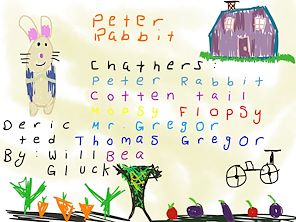 Peter
Rabbit
Chathers:
Peter Rabbit
Cotten tail
Mopsy Flopsy
Mr. Gregor
Thomas Gregor
Bea
Deric
ted
By: Will
Gluck